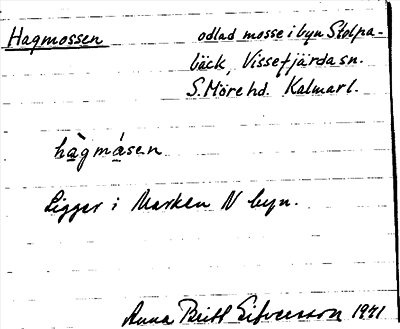 Hagmossen
odlad mosse i byn Stolpa-
bäck, Vissefjärda sn.
S. Möre hd. Kalmar l.
hàgmásen
Ligger i Marken N byn.
Anna Britt 1941